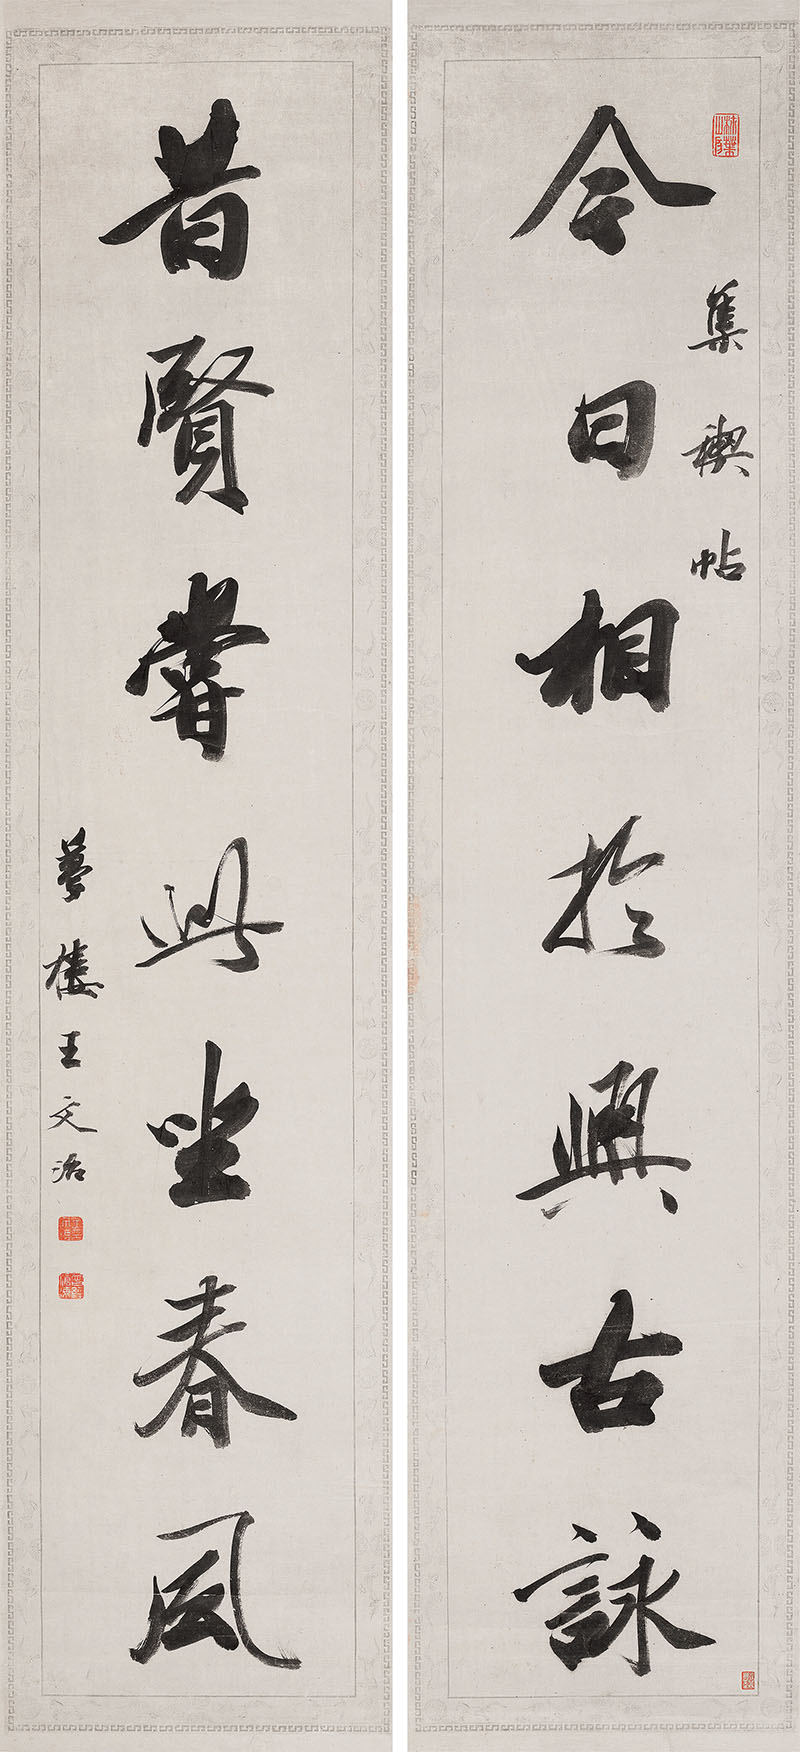 柿葉山房
集禊帖
今日相於興古詠
昔賢嘗此坐春風
夢樓王文治